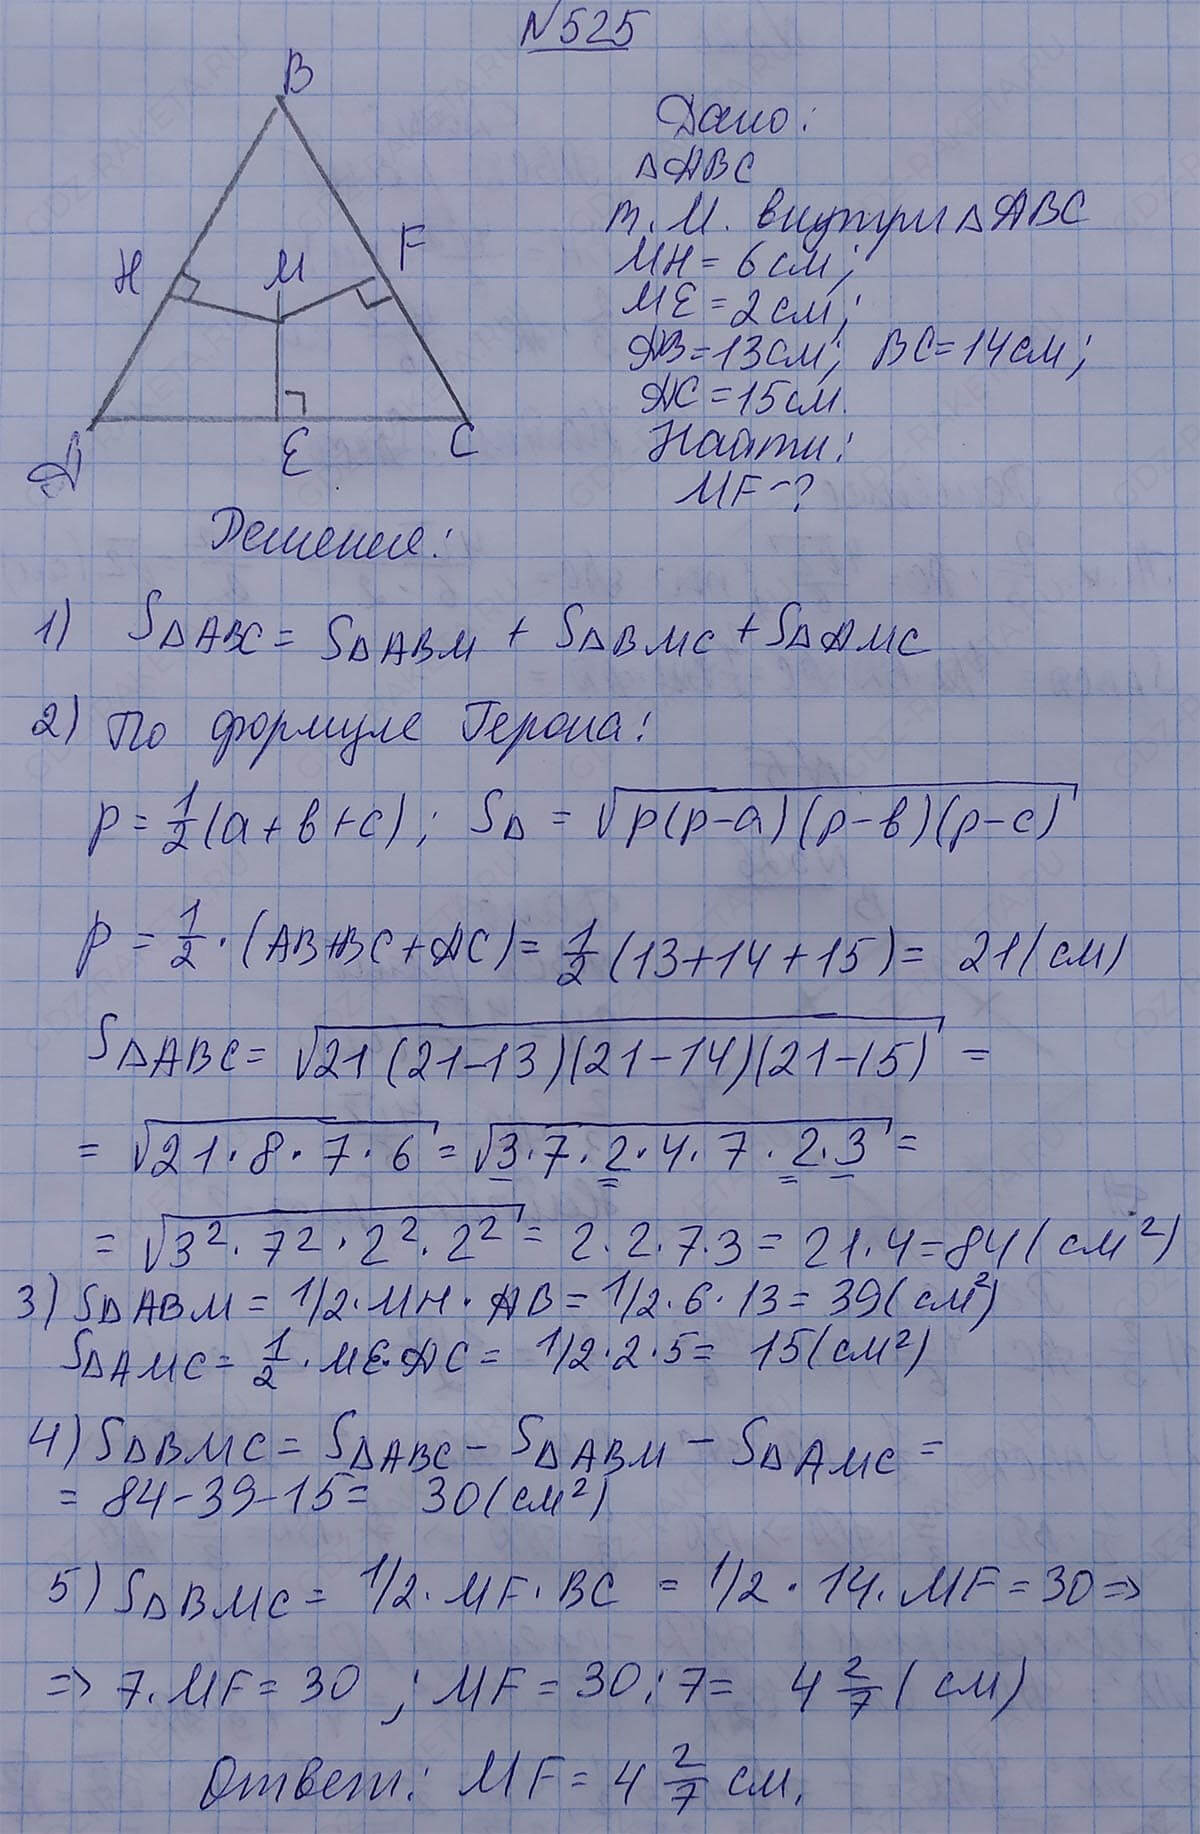 №525
B
H
M
F
A
E
C
Дано:
△ABC
т. М. внутри △ABC
MH = 6 см;
ME = 2 см;
AB = 13 см; BC = 14 см;
AC = 15 см.
Найти:
MF - ?
Решение:
1) S△ABC = S△ABM + S△BMC + S△AMC
2) По формуле Герона:
p = 1/2 (a + b + c); S△ = √p(p-a)(p-b)(p-c)
p = 1/2 · (AB+BC+AC) = 1/2 (13+14+15) = 21 (см)
S△ABC = √21(21-13)(21-14)(21-15) =
= √21·8·7·6 = √3·7·2·4·7·2·3 =
= √3²·7²·2²·2² = 2·2·7·3 = 21·4 = 84 (см²)
3) S△ABM = 1/2·MH·AB = 1/2·6·13 = 39 (см²)
S△AMC = 1/2·ME·AC = 1/2·2·5 = 15 (см²)
4) S△BMC = S△ABC - S△ABM - S△AMC =
= 84-39-15 = 30 (см²)
5) S△BMC = 1/2·MF·BC = 1/2·14·MF = 30 =>
=> 7·MF = 30 ; MF = 30:7 = 4 2/7 (см)
Ответ: MF = 4 2/7 см.